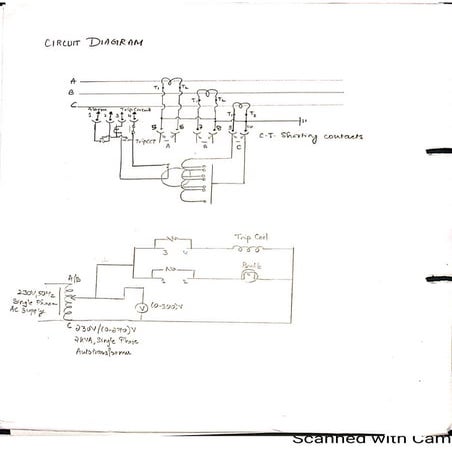 CIRCUIT DIAGRAM
A
B
C
T1 T2
T1 T2
T1 T2
Alarm Trip Circuit
1 2 3 4
5 6 7 8
A B C
C.T. Shorting contacts
Trip Coil
3 4
Bulb
1 2
A/B
230V, 50Hz
Single Phase
AC Supply
V
C
230V/(0-270)V
2kVA, Single Phase
Autotransformer
Scanned with Cam